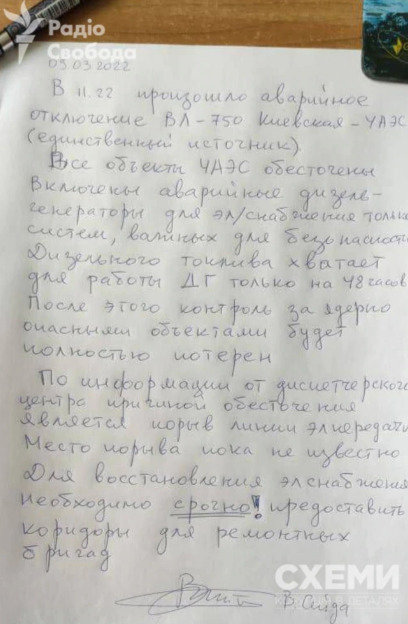 Радіо
Свобода
09.03.2022
В 11.22 произошло аварийное
отключение ВЛ-750 Киевская-ЧАЭС
(единственный источник).
Все объекты ЧАЭС обесточены
Включены аварийные дизель-
генераторы для эл/снабжения только
систем, важных для безопасности
Дизельного топлива хватает
для работы ДГ только на 48 часов
После этого контроль за ядерно
опасными объектами будет
полностью потерен
По информации от диспетчерского
центра причиной обесточения
является порыв линии эл передати
Место порыва пока не известно
Для восстановления эл снабжения
необходимо срочно! предоставить
коридоры для ремонтных
бригад
СХЕМИ
В. Сейда